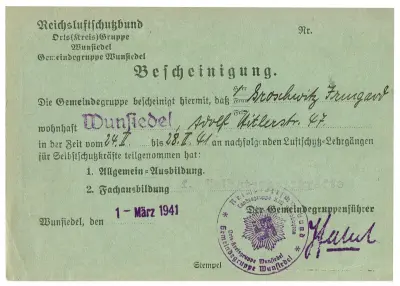 Reichsluftschutzbund
Nr.
Orts(Kreis)Gruppe
Wunsiedel
Gemeindegruppe Wunsiedel
Bescheinigung.
Die Gemeindegruppe bescheinigt hiermit, daß Groschwitz Irmgard
wohnhaft Wunsiedel, Adolf Hitlerstr. 47
in der Zeit vom 24.II. bis 28.II.41 an nachfolgenden Luftschutz-Lehrgängen
für Selbstschutzkräfte teilgenommen hat:
1. Allgemein-Ausbildung.
2. Fachausbildung
Wunsiedel, den 1 - März 1941
Der Gemeindegruppenführer
Gemeindegruppe Wunsiedel
Stempel